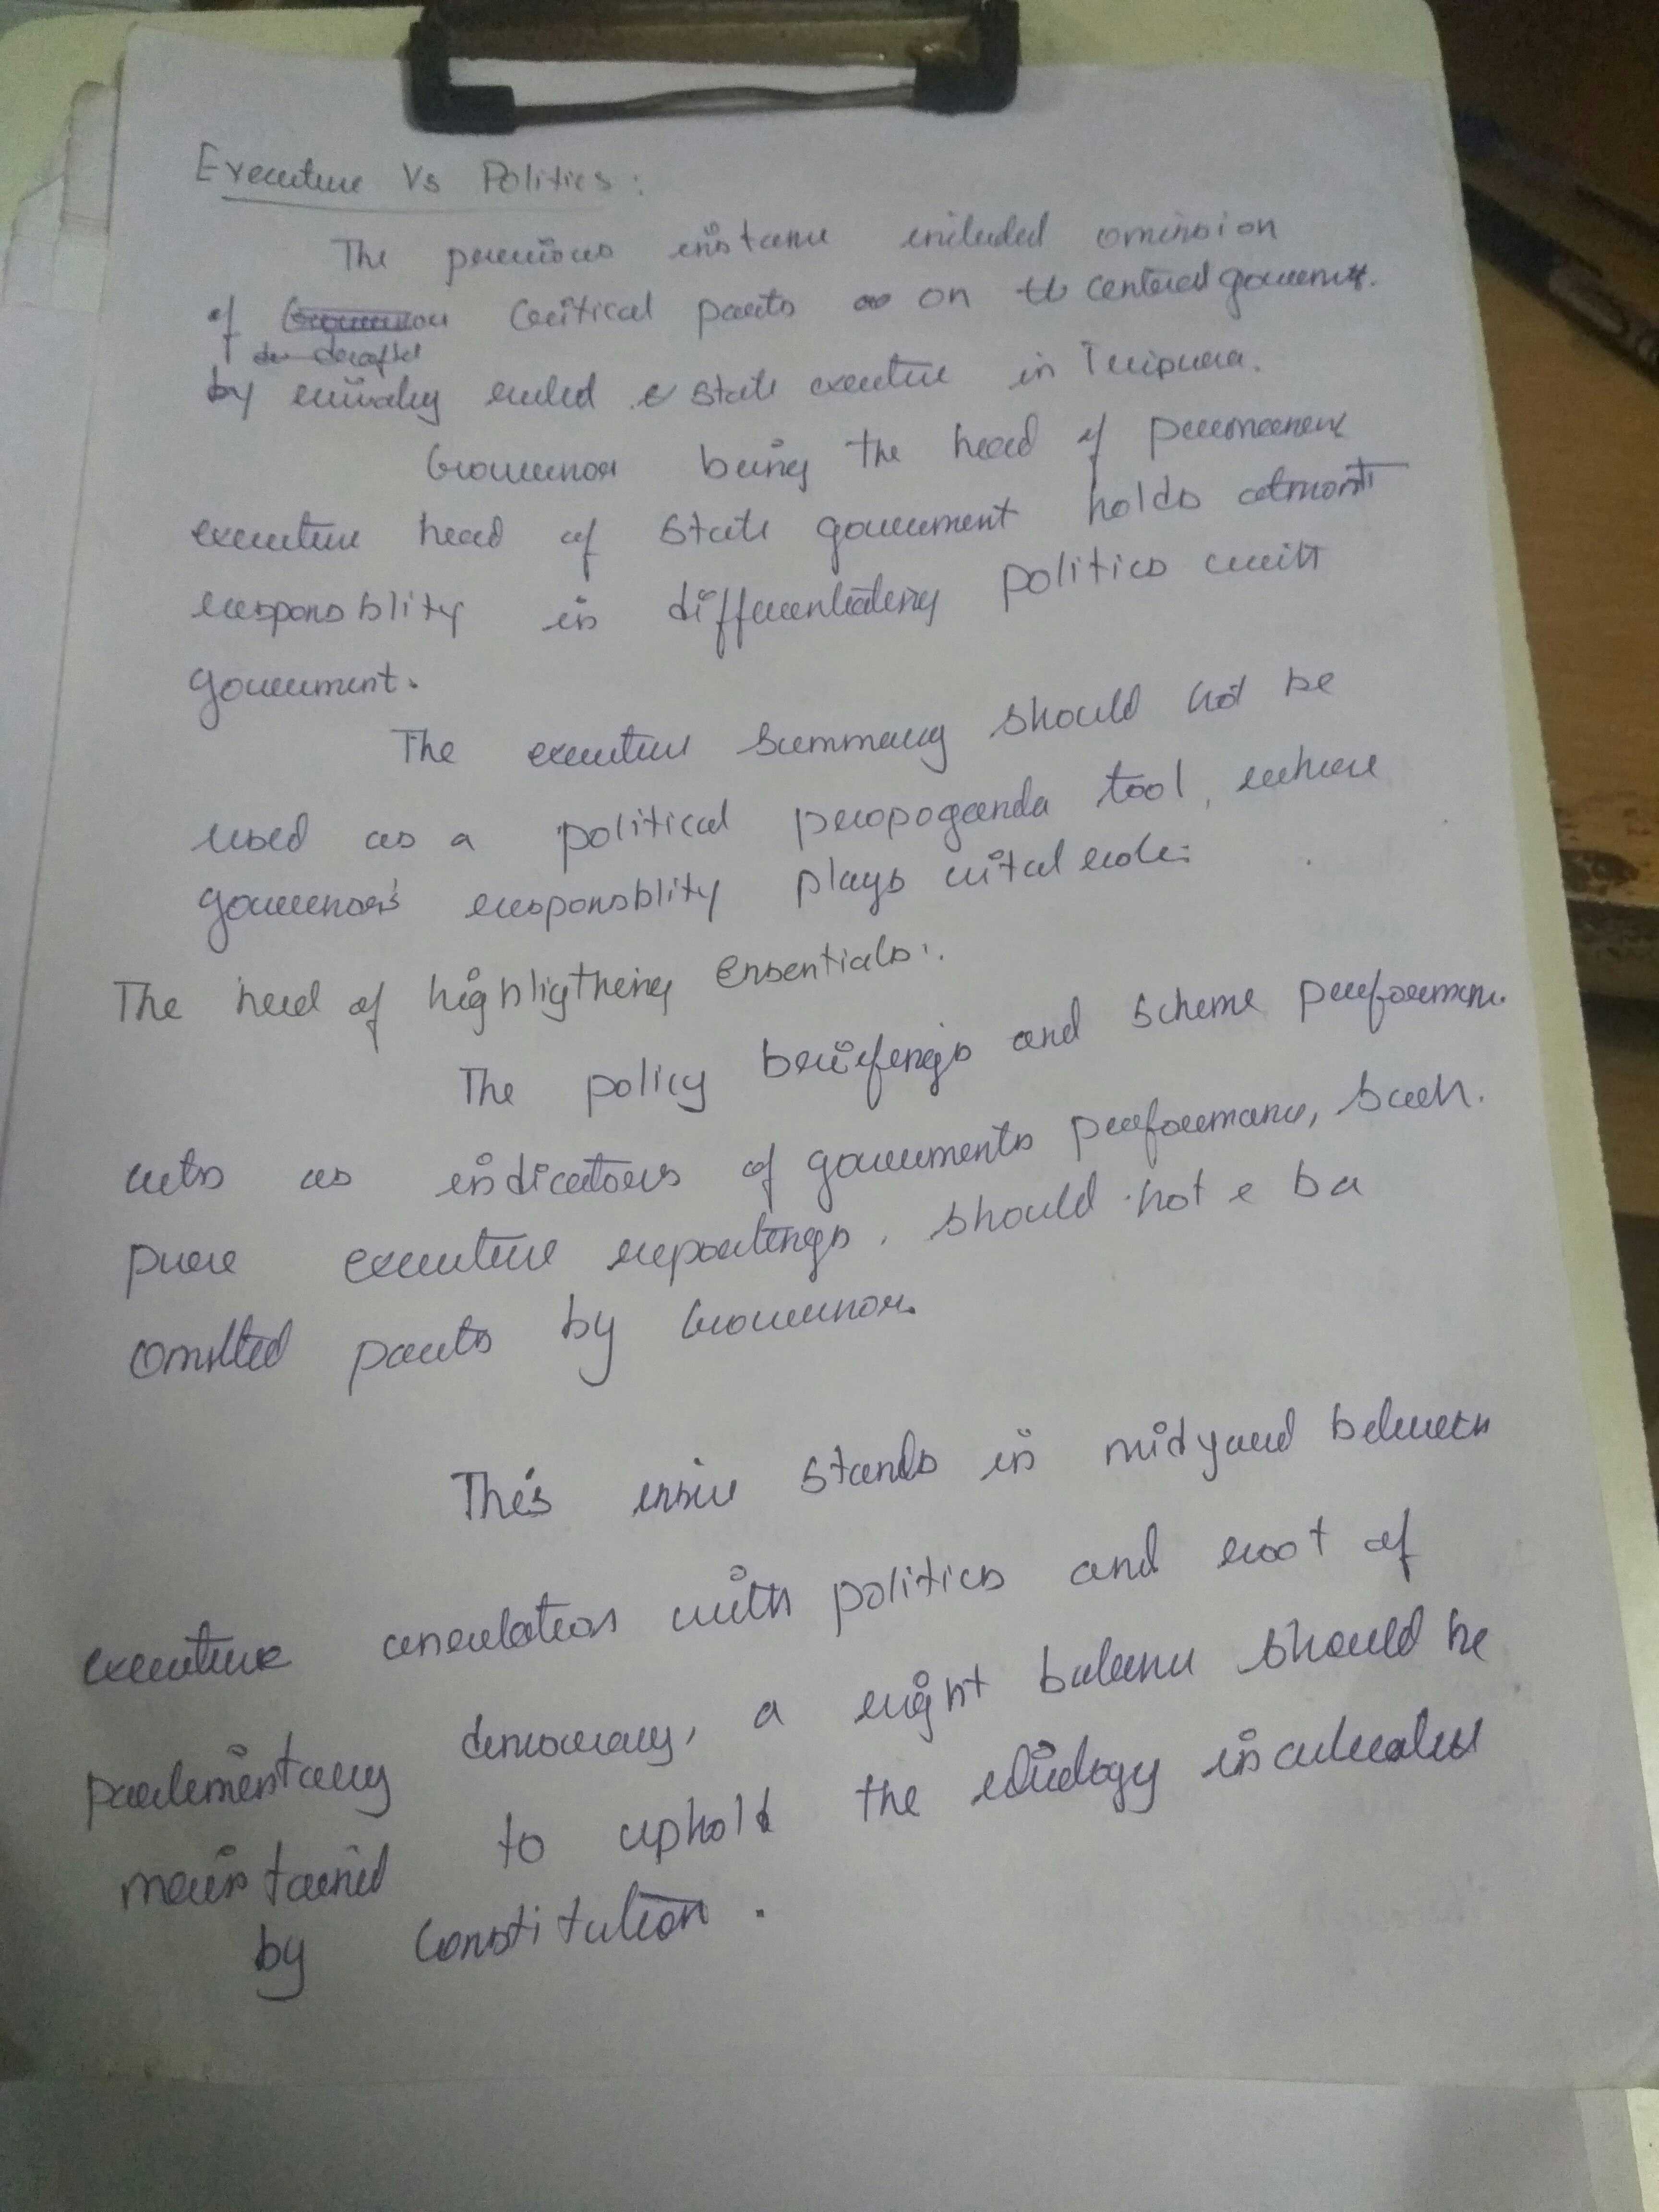 Executive Vs Politics:
The previous instance included omission
of critical parts on the central government.
by rivalry ruled state executive in Tripura.
Governor being the head of permanent
executive head of state government holds utmost
responsblity in differentiating politics with
government.
The executive summary should not be
used as a political propoganda tool, where
governor's responsblity plays vital role:
The need of highligthing essentials:
The policy briefings and scheme performance
acts as indicators of governments performance, such
pure executive reportings, should not be
omitted parts by Governor.
This issue stands in midyard between
executive with politics and root of
parlimentary democracy, a right balance should be
maintained to uphold the inculcated
by Constitution.